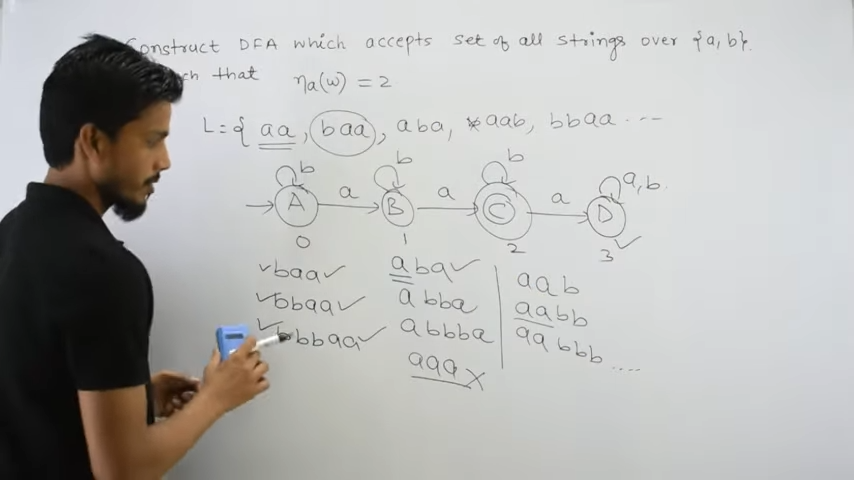 Construct DFA which accepts set of all strings over {a, b}.
ch that ηa(w) = 2
L = { aa, baa, aba, aab, bbaa ....
b b b
A a B a C a D a, b
0 1 2 3 ✓
✓baa✓
✓bbaa✓
✓bbbaa✓
aba✓
abba
abbba
aaa X
aab
aabb
aabbb ....